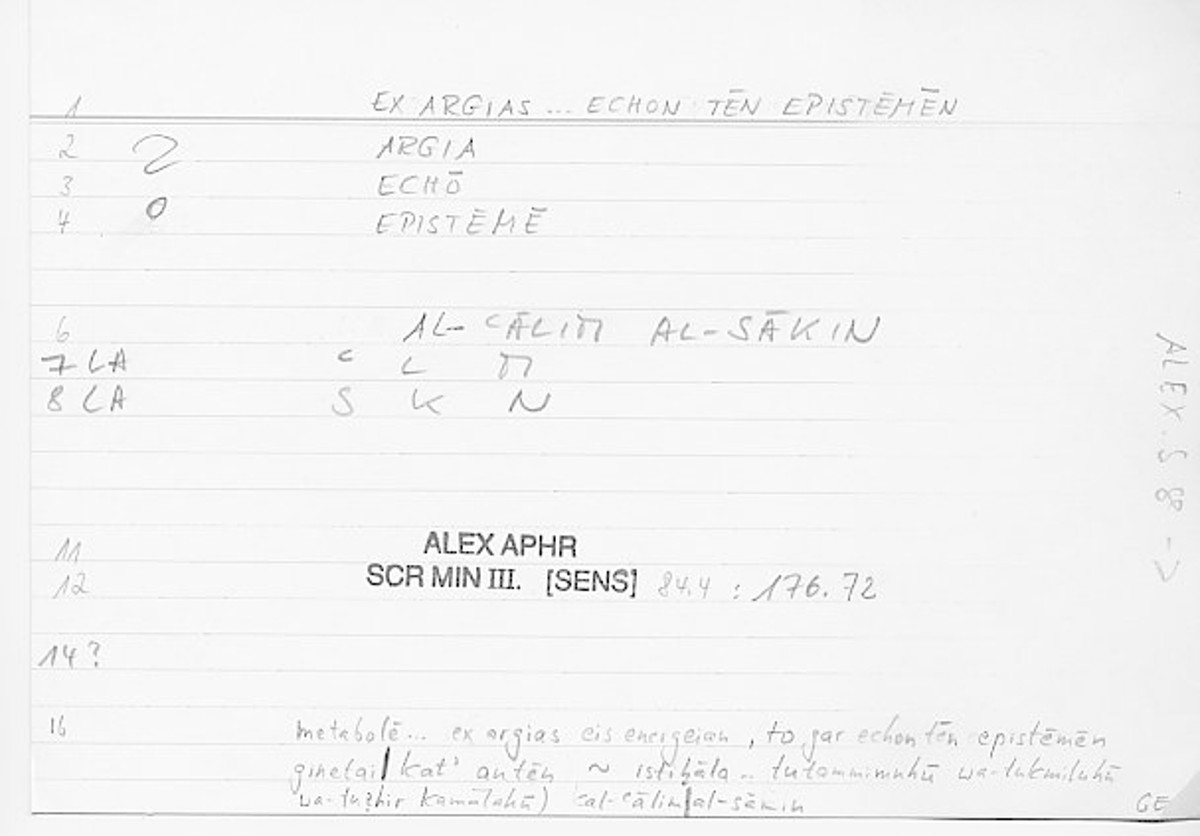 1 EX ARGIAS ... ECHON TĒN EPISTĒMĒN
2 ARGIA
3 ECHŌ
4 EPISTĒMĒ
6 AL-ʿĀLIM AL-SĀKIN
7 LA ʿ L M
8 LA S K N
11 ALEX APHR
12 SCR MIN III. [SENS] 84.4 : 176.72
14?
16 metabolē... ex argias eis energeian, to gar echon tēn epistēmēn
ginetai kat' autēn ~ istiḥāla .. tutammimuhū wa-tukmiluhū
wa-tuẓhir kamālahū) al-ʿālim al-sākin
GE
ALEX. S 88 ->